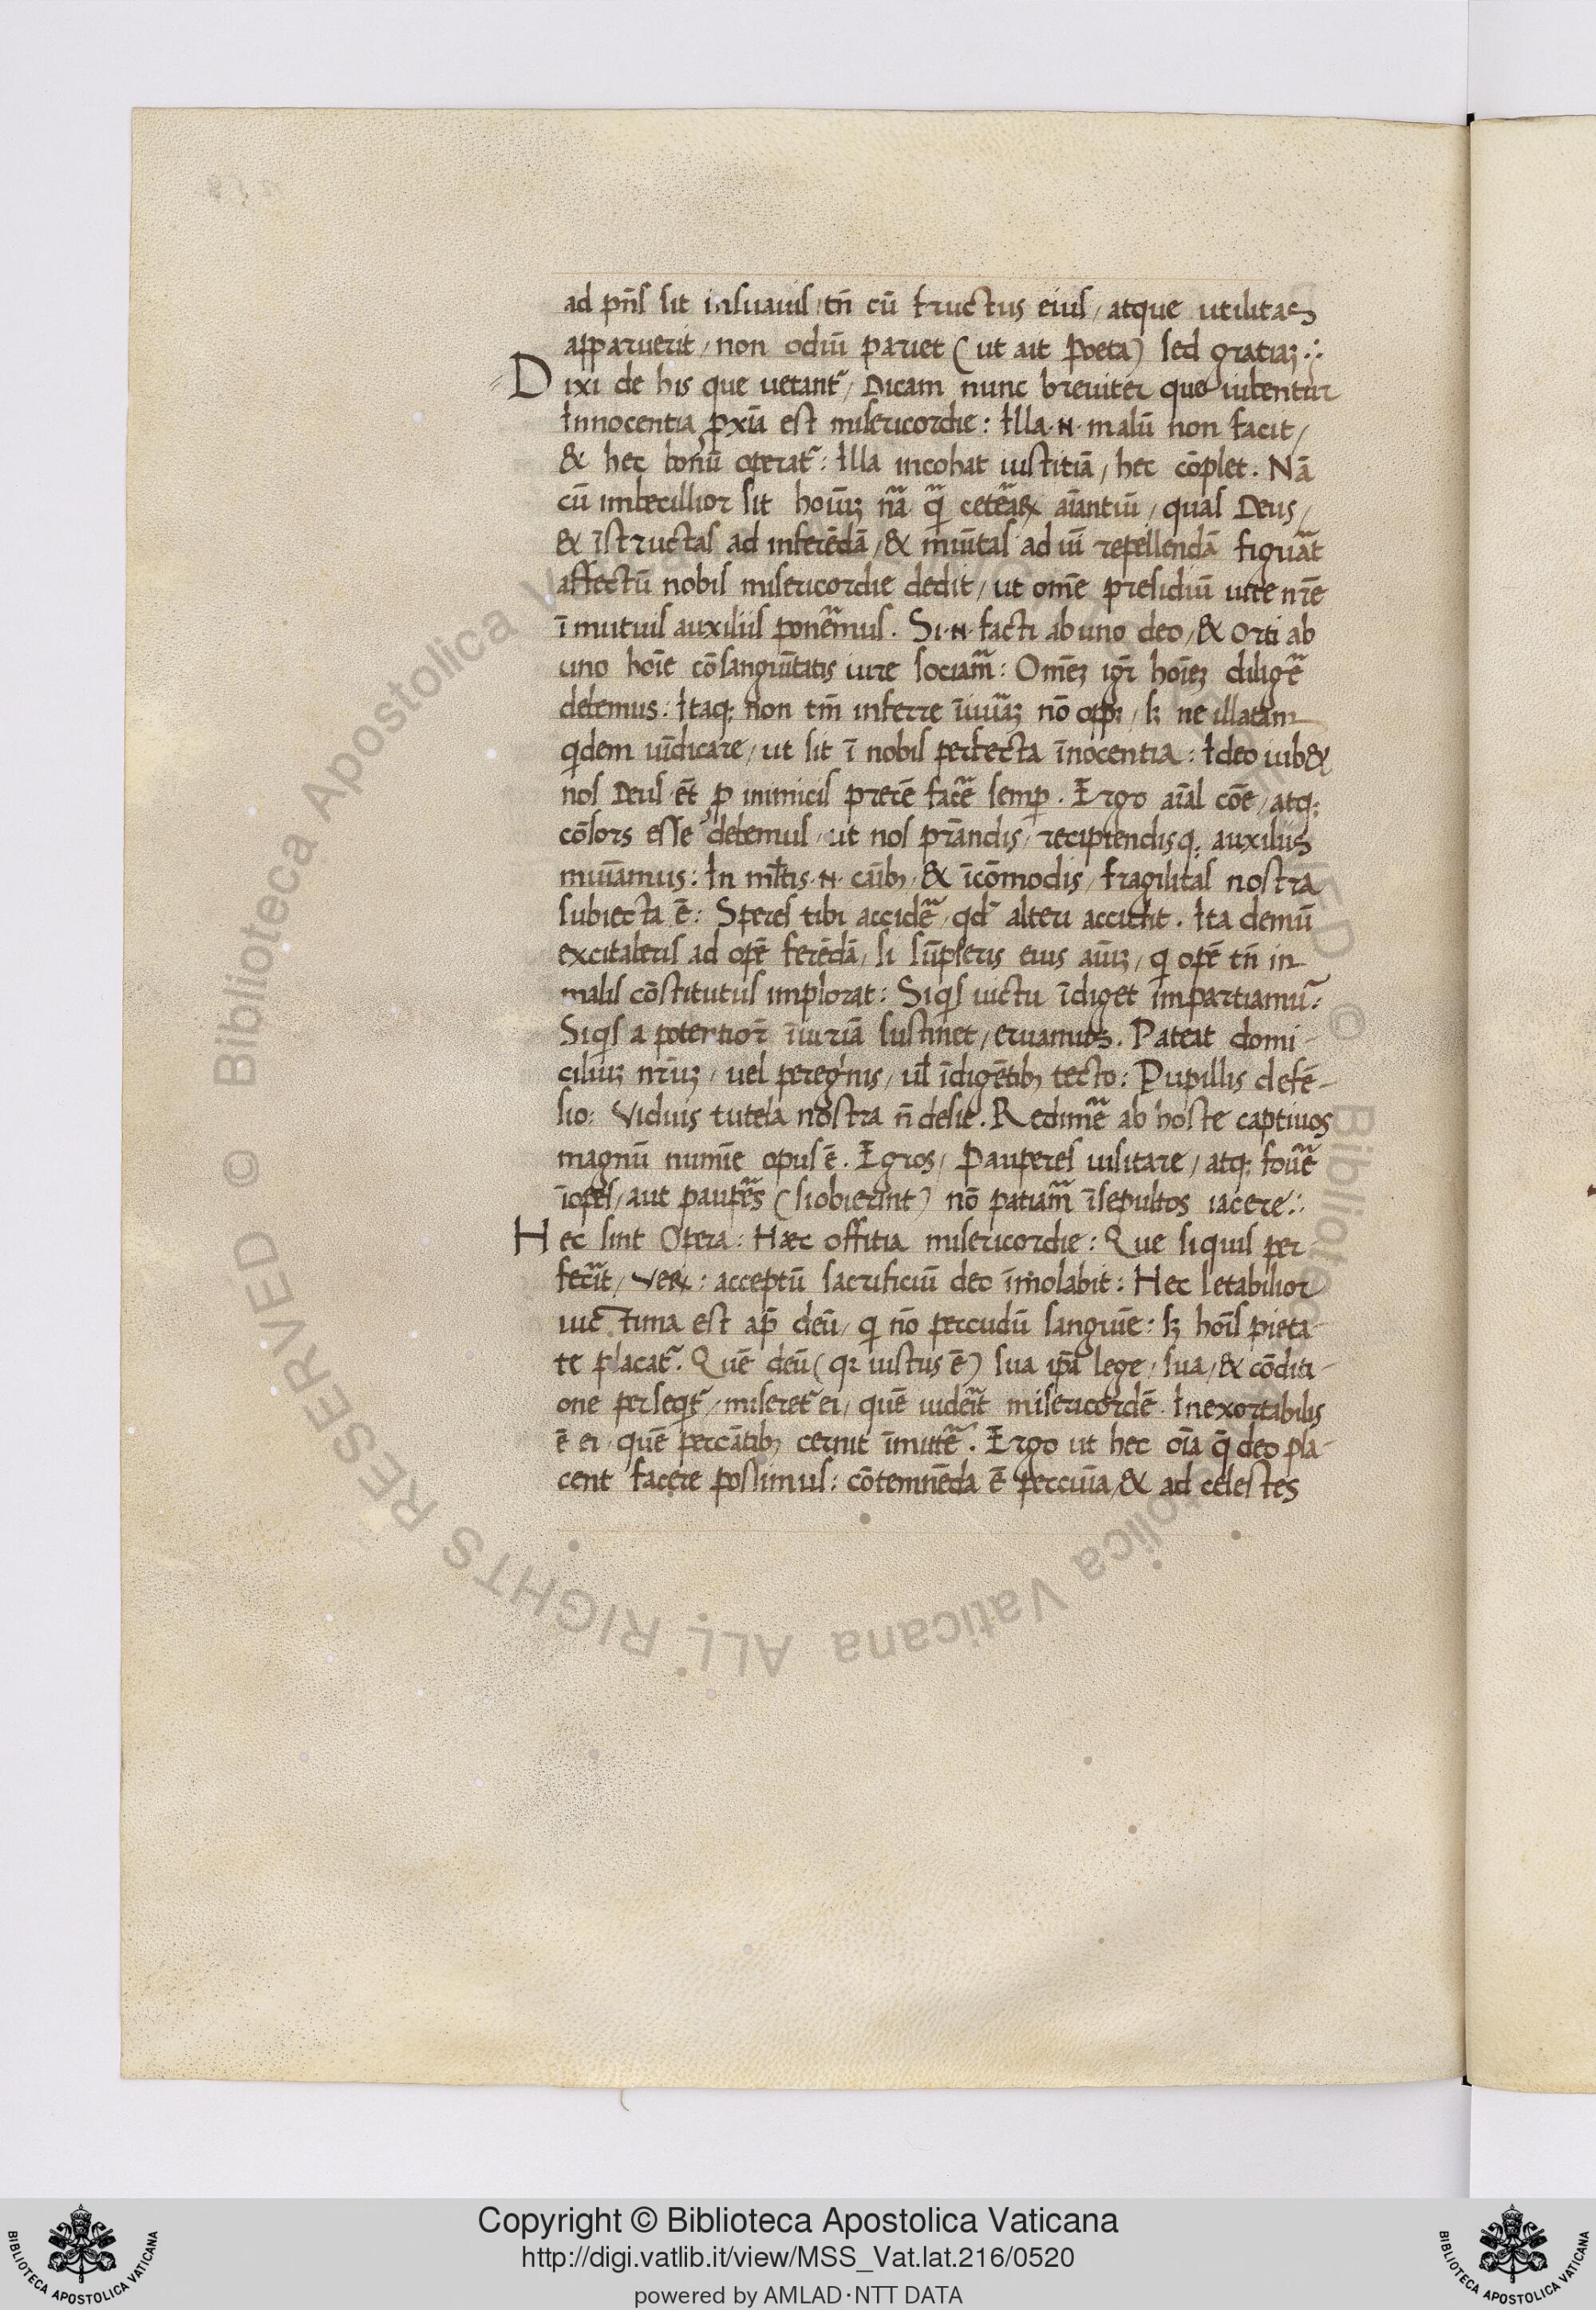 ad pn̄s sit insuauis tn̄ cū fructus eius, atque utilitas
apparuerit, non odiū pariet (ut ait Poeta) sed gratiaȝ:·
Dixi de his que uetant᷑, Dicam nunc breuiter que iubentur
Innocentia ꝓxīa est misericordie: Illa ·N· malū non facit,
& hec bonū operat᷑: Illa incohat iustitiā, hec cōplet. Nā
cū imbecillior sit hoīuȝ nā̃ qͣ̄ ceteãꝝ aīantiū, quas Deus,
& īstructas ad inferēdā, & munītas ad uī repellendā figurãt
affectū nobis misericordie dedit, ut omē presidiū uite nr̄e
ī mutuis auxiliis ponem̃us. Si ·N· facti ab uno deo, & orti ab
uno hoīe cōsanguītatis iure sociam̃: Omēȝ igr̄ hoīeȝ diligē̃
debemus: Itaqꝫ non tm̄ inferre īiuriãȝ nō opꝫ, sȝ ne illatam
qͥdem uīdicare, ut sit ī nobis perfecta īnocentia: Ideo iub&
nos Deus et̄ ꝓ inimicis precē facē̃ semꝑ. Ergo aīal cōe, atqꝫ
cōsors esse debemus, ut nos prāndis, recipiendisqꝫ auxiliis
muniamus: In ml̄tis ·N· caībꝫ & īcōmodis, fragilitas nostra
subiecta ē: Speres tibi accidē̃, qd᷑ alteri accidit. Ita demū
excitaberis ad opē ferēdā, si sūpseris eius aīuȝ, qͥ opē tn̄ in
malis cōstitutus implorat: Siqͥs uictu īdiget impartiamu᷑:
Siqͥs a potentior̄ īiuriā sustinet, eruamus. Pateat domi-
ciliuȝ nr̄uȝ, uel peregͥnis, ul̄ īdigētibꝫ tecto: Pupillis defē-
sio: Viduis tutela nostra n̄ desit. Redimē̃ ab hoste captiuos
magnū numīe opus ē. Egros, Pauperes uisitare, atqꝫ fouē̃
īopes, aut paupẽs (si obierint) nō patiam̃ īsepultos iacere:·
Hec sint Opera: Hæc offitia misericordie: Que si quis per-
fecĩt, Veꝝ: acceptū sacrificiū deo īmolabit: Hec letabilior
uictima est ap̄ deū, qͥ nō peccudū sanguīe: sȝ hoīs pieta-
te placat᷑. Quē deū (qꝛ iustus ē) sua ip̄a lege, sua, & cōditi-
one perseqͥt᷑, miseret᷑ ei, quē uidẽit misericordē. Inexortabilis
ē ei, quē peccātibꝫ cernit īmitē̃. Ergo ut hec oīa q̄ deo pla-
cent facere possimus: cōtemnēda ē peccuīa, & ad celestes
Copyright © Biblioteca Apostolica Vaticana
http://digi.vatlib.it/view/MSS_Vat.lat.216/0520
powered by AMLAD·NTT DATA
BIBLIOTECA APOSTOLICA VATICANA
BIBLIOTECA APOSTOLICA VATICANA
© Biblioteca Apostolica Vaticana ALL RIGHTS RESERVED